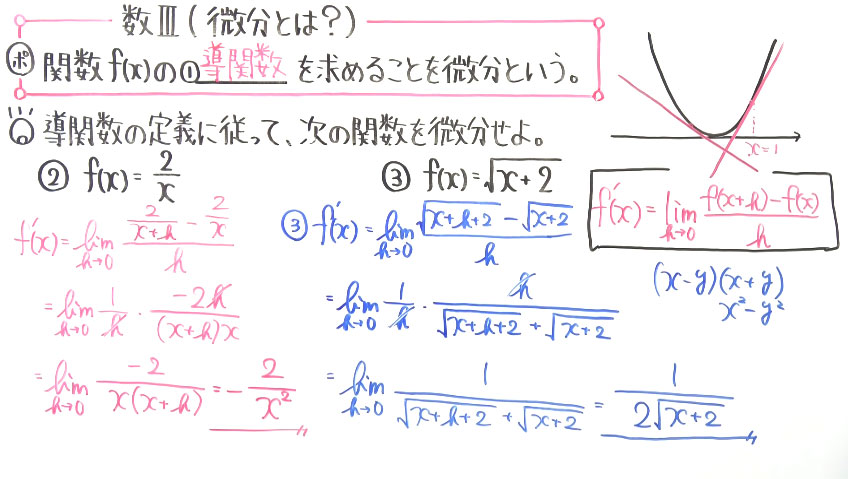 数Ⅲ(微分とは?)
ポ 関数f(x)の①導関数を求めることを微分という。
導関数の定義に従って、次の関数を微分せよ。
② f(x)=2/x ③ f(x)=√(x+2)
x=1
f'(x)=lim h→0 (f(x+h)-f(x))/h
f'(x)=lim h→0 (2/(x+h)-2/x)/h
=lim h→0 1/h・(-2h)/((x+h)x)
=lim h→0 (-2)/(x(x+h))=-2/x²
③ f'(x)=lim h→0 (√(x+h+2)-√(x+2))/h
=lim h→0 1/h・h/(√(x+h+2)+√(x+2))
=lim h→0 1/(√(x+h+2)+√(x+2))=1/(2√(x+2))
(x-y)(x+y)
x²-y²